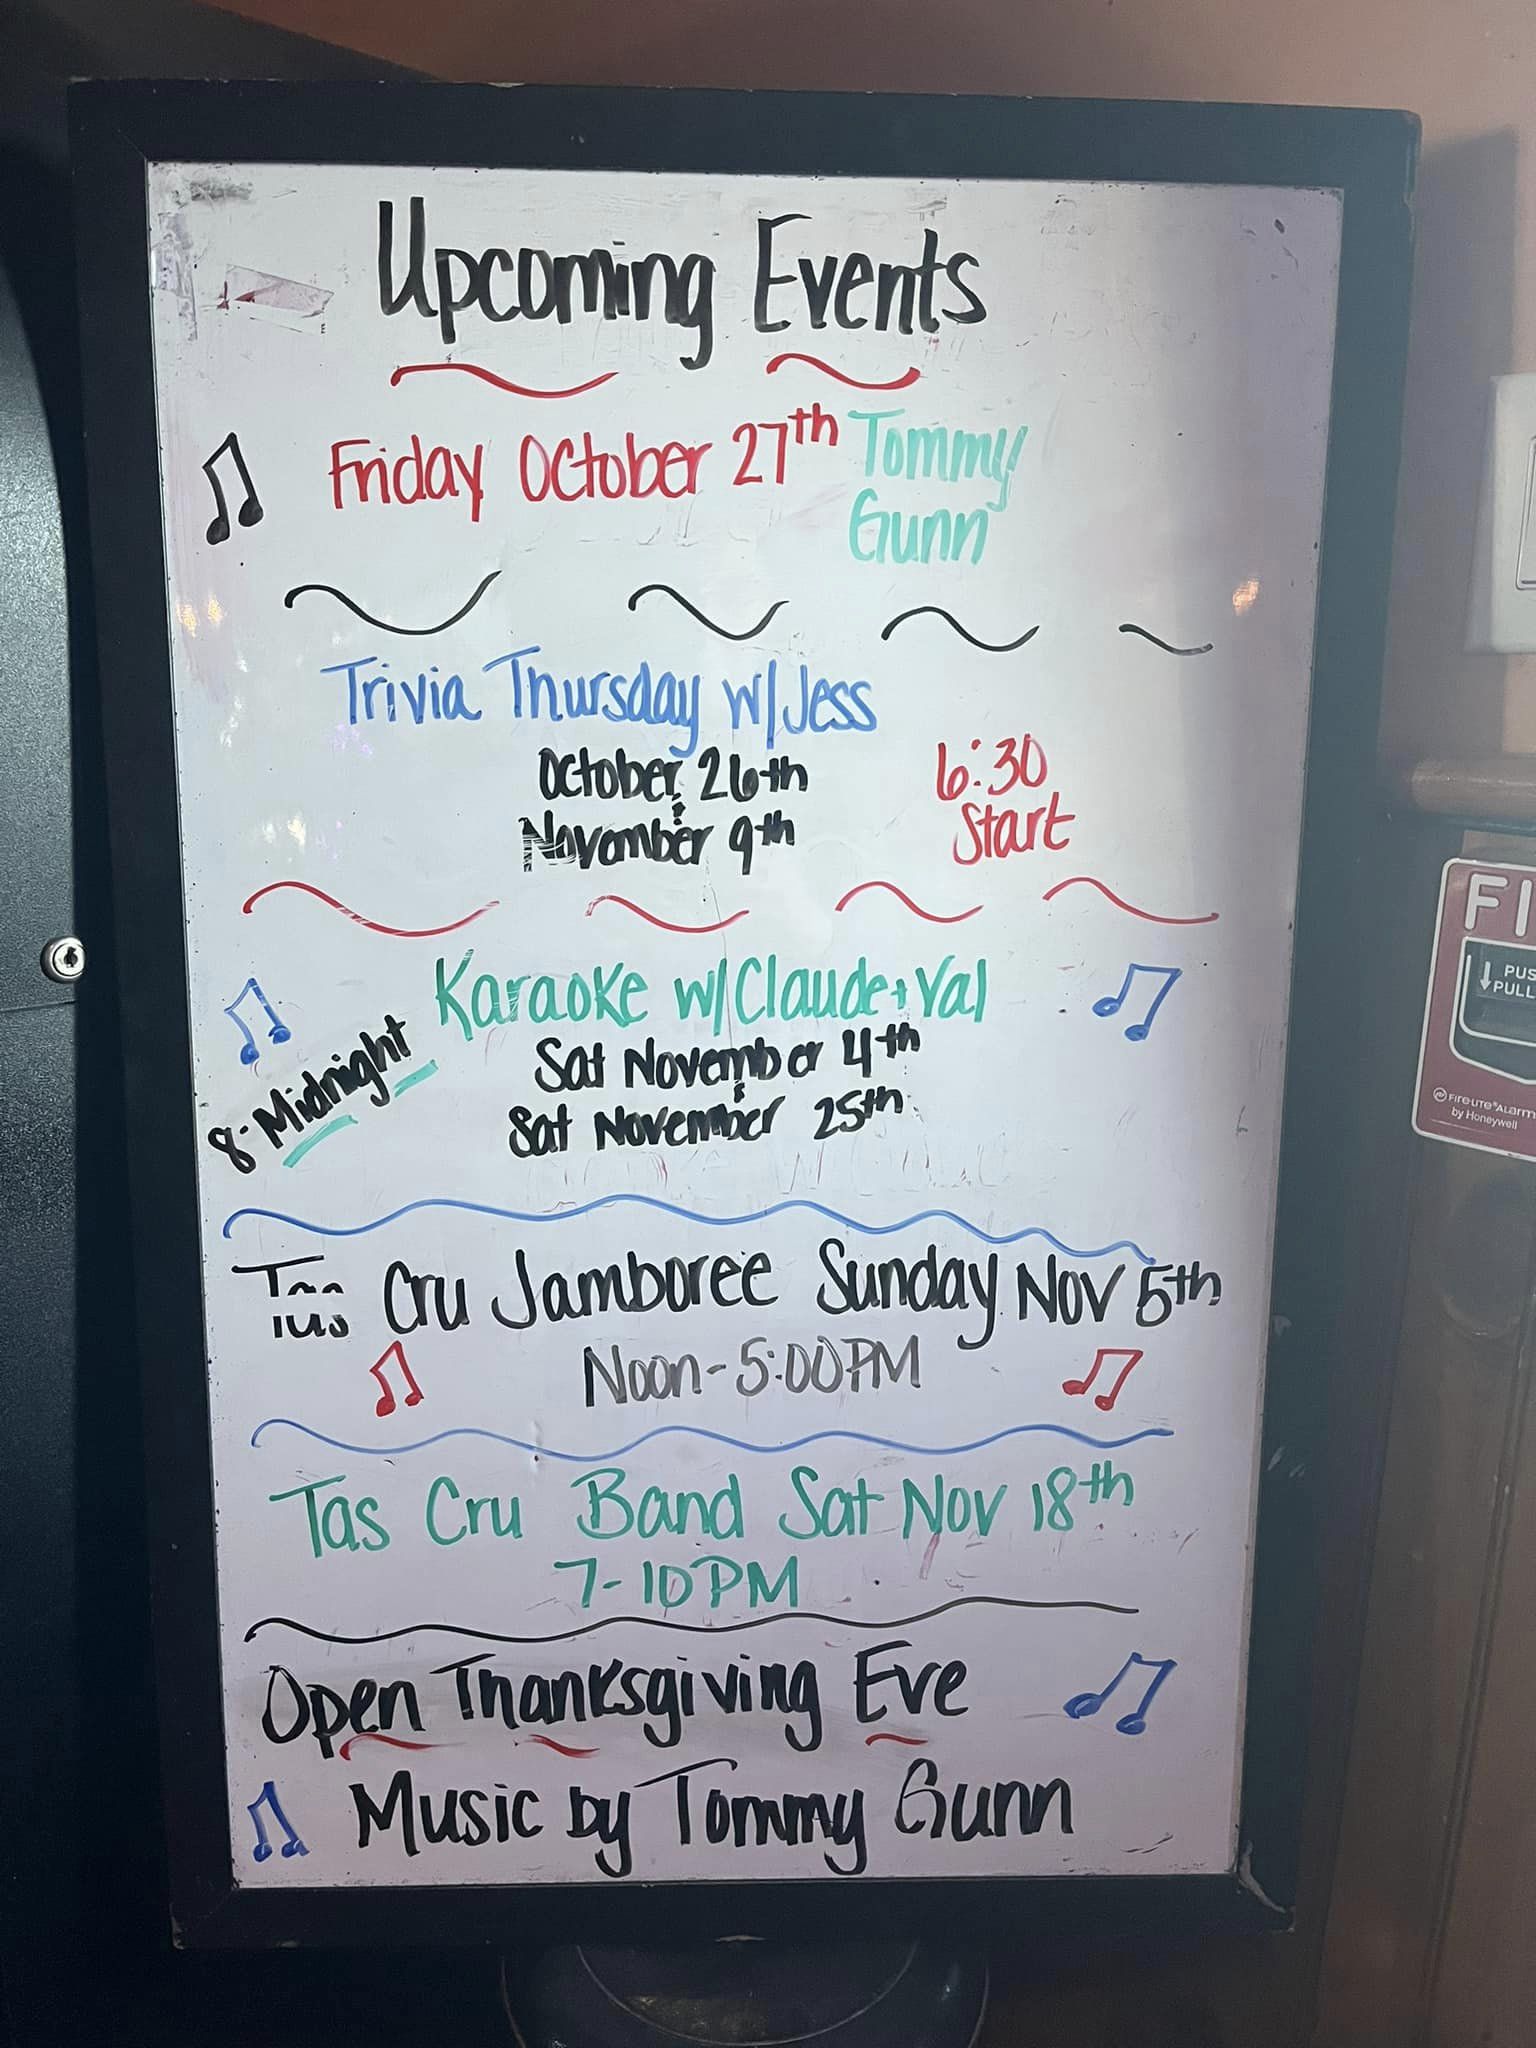 Upcoming Events
Friday October 27th Tommy
Gunn
Trivia Thursday w/Jess
October 26th
&
November 9th
6:30
Start
Karaoke w/Claude+Val
8-Midnight
Sat November 4th
&
Sat November 25th
Tas Cru Jamboree Sunday Nov 5th
Noon-5:00PM
Tas Cru Band Sat Nov 18th
7-10PM
Open Thanksgiving Eve
Music by Tommy Gunn
FI
PUS
PULL
FIRE-LITE® ALARM
by Honeywell